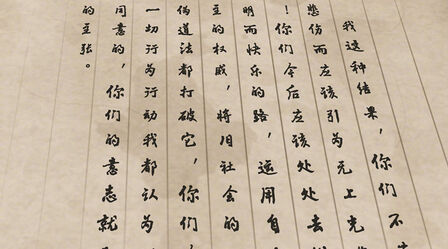 我这种结果，你们不
悲伤而应该引为无上光
！你们今后应该处处去
明而快乐的路，运用自
主的权威，将旧社会的
伪道法都打破它，你们
一切行为行动我都认为
同意的，你们的意志就
的主张。